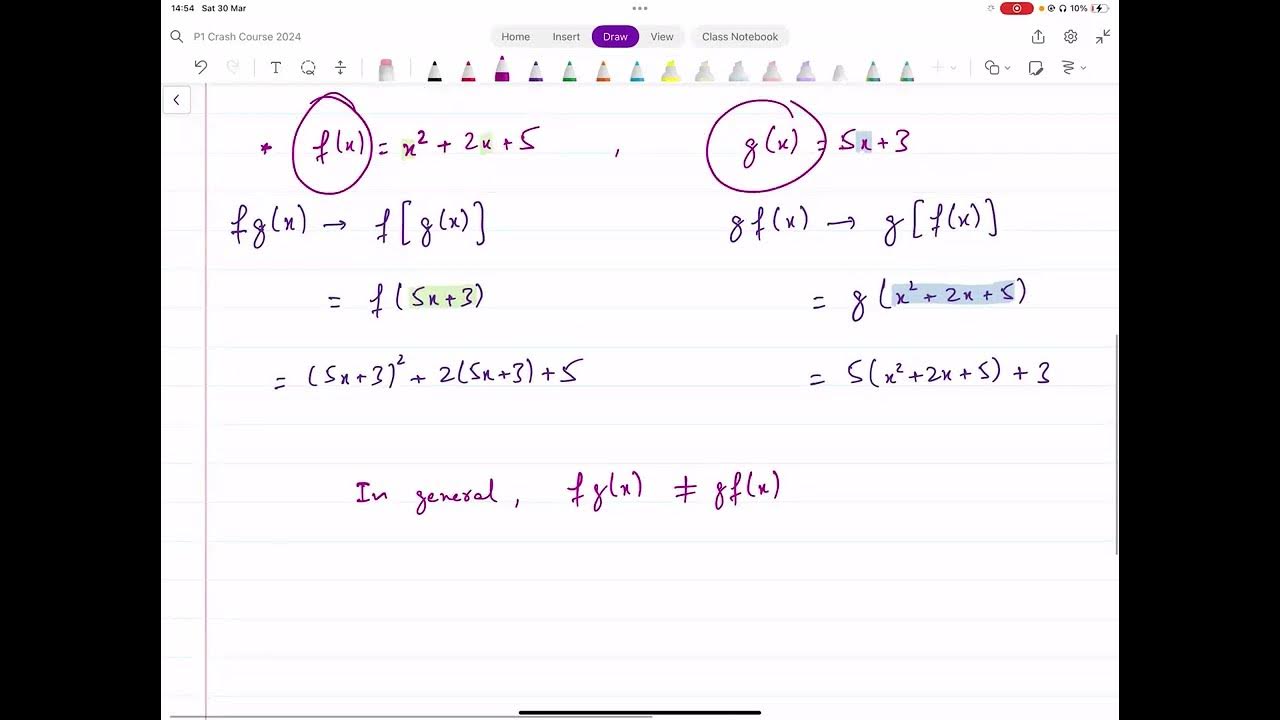 14:54 Sat 30 Mar 10%
P1 Crash Course 2024 Home Insert Draw View Class Notebook
* f(x) = x² + 2x + 5 , g(x) = 5x + 3
fg(x) → f[g(x)] gf(x) → g[f(x)]
= f(5x+3) = g(x² + 2x + 5)
= (5x+3)² + 2(5x+3) + 5 = 5(x²+2x+5) + 3
In general, fg(x) ≠ gf(x)